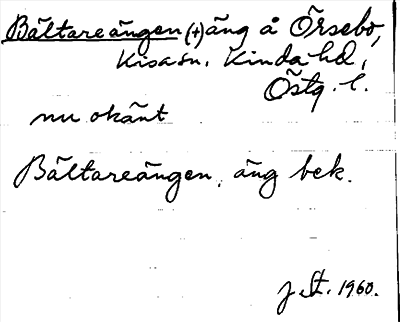 Bältareängen (+) äng å Örsebo,
Kisa sn. Kinda hd,
Östg. l.
nu okänt
Bältareängen, äng bek.
J. St. 1960.